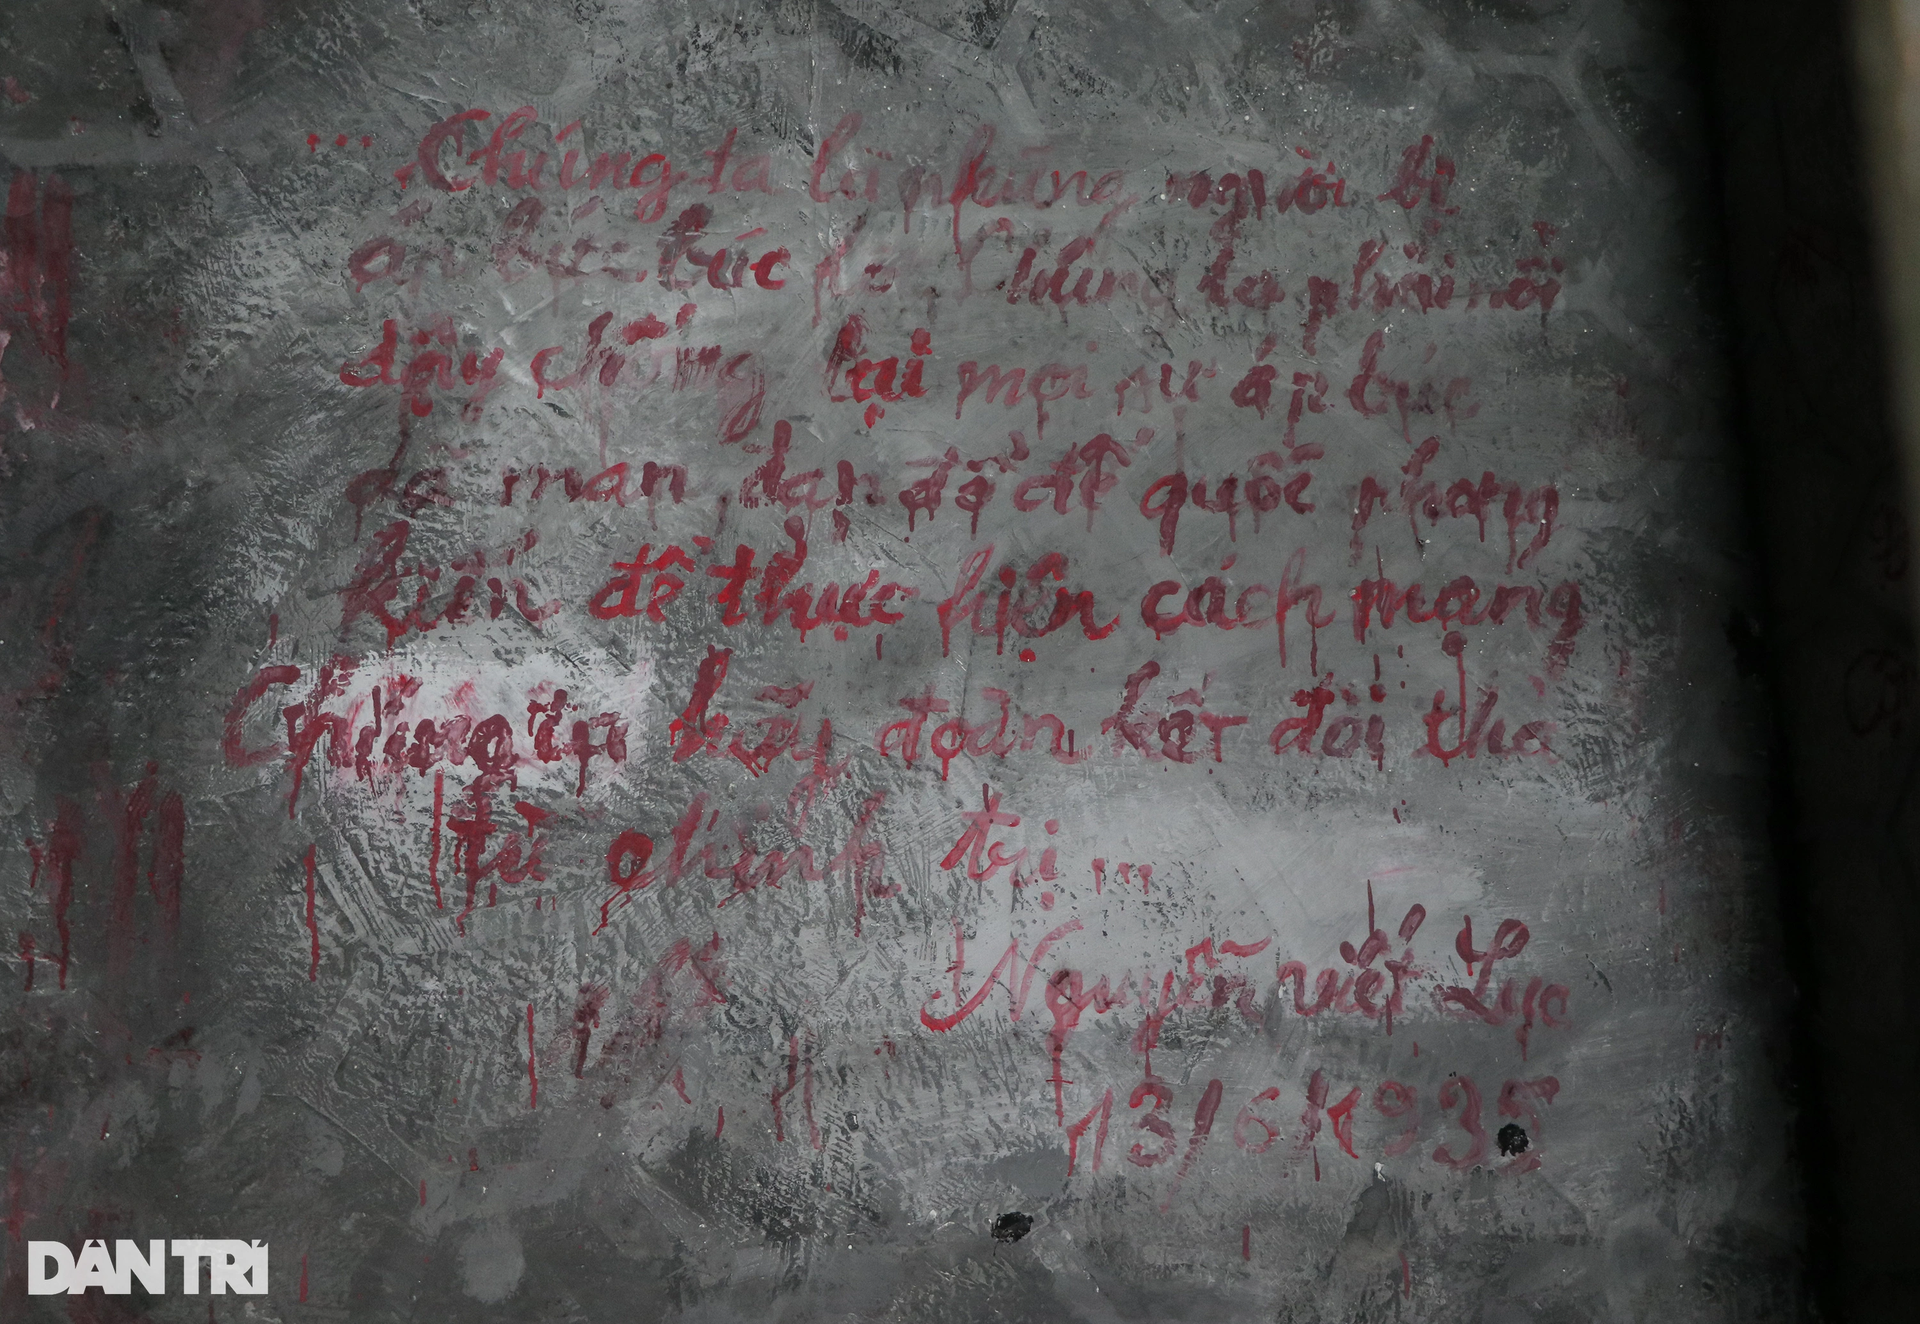 ... Chúng ta là những người bị
áp bức bóc lột. Chúng ta phải nổi
dậy chống lại mọi sự áp bức
dã man, đạp đổ đế quốc phong
kiến để thực hiện cách mạng
Chúng ta hãy đoàn kết đòi thả
tù chính trị ...
Nguyễn Viết Lục
13/6/1935
DÂN TRÍ